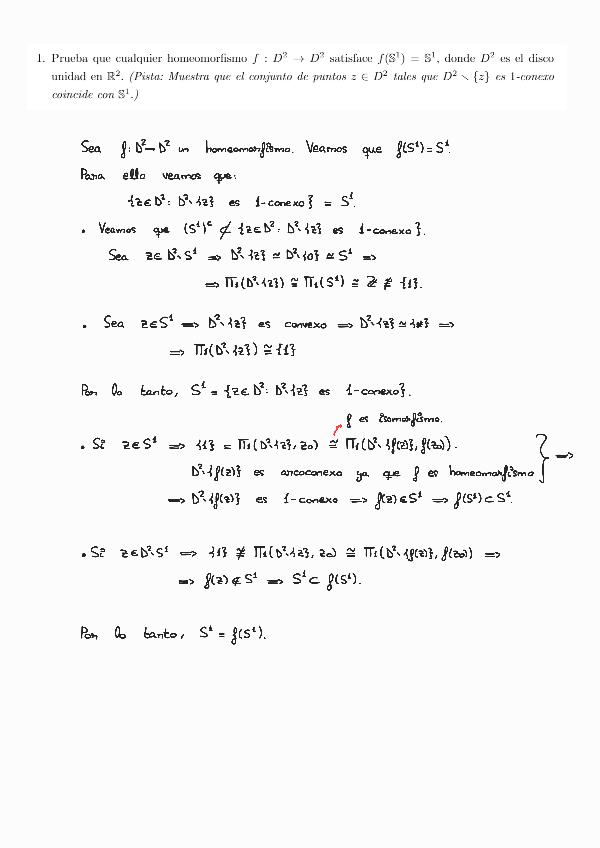 1. Prueba que cualquier homeomorfismo f : D² → D² satisface f(𝕊¹) = 𝕊¹, donde D² es el disco
unidad en ℝ². (Pista: Muestra que el conjunto de puntos z ∈ D² tales que D² ∖ {z} es 1-conexo
coincide con 𝕊¹.)
Sea f: D²→D² un homeomorfismo. Veamos que f(S¹)=S¹.
Para ello veamos que:
{z∈D²: D²\{z} es 1-conexo} = S¹.
• Veamos que (S¹)ᶜ ⊄ {z∈D²: D²\{z} es 1-conexo}.
Sea z∈D²\S¹ ⇒ D²\{z} ≃ D²\{0} ≃ S¹ ⇒
⇒ Π₁(D²\{z}) ≅ Π₁(S¹) ≅ ℤ ≇ {1}.
• Sea z∈S¹ ⇒ D²\{z} es convexo ⇒ D²\{z} ≃ {*} ⇒
⇒ Π₁(D²\{z}) ≅ {1}
Por lo tanto, S¹ = {z∈D²: D²\{z} es 1-conexo}.
f es isomorfismo.
• Si z∈S¹ ⇒ {1} = Π₁(D²\{z}, z₀) ≅ Π₁(D²\{f(z)}, f(z₀)).
D²\{f(z)} es arcoconexo ya que f es homeomorfismo } ⇒
⇒ D²\{f(z)} es 1-conexo ⇒ f(z)∈S¹ ⇒ f(S¹)⊂S¹.
• Si z∈D²\S¹ ⇒ {1} ≇ Π₁(D²\{z}, z₀) ≅ Π₁(D²\{f(z)}, f(z₀)) ⇒
⇒ f(z)∉S¹ ⇒ S¹⊂ f(S¹).
Por lo tanto, S¹ = f(S¹).